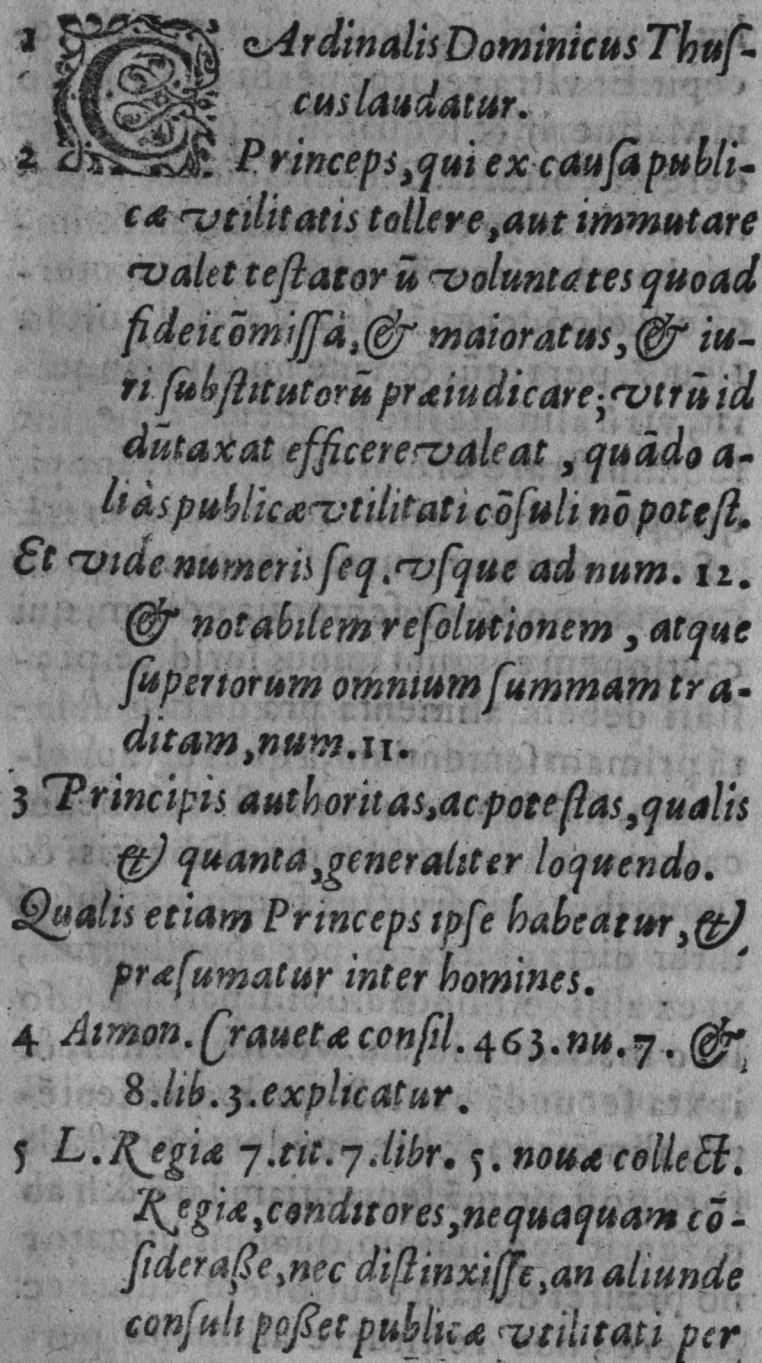 1 CArdinalis Dominicus Thuſ-
cus laudatur.
2 Princeps, qui ex cauſa publi-
cæ vtilitatis tollere, aut immutare
valet teſtatorũ voluntates quoad
fideicõmiſſa, & maioratus, & iu-
ri ſubſtitutorũ præiudicare; vtrũ id
dũtaxat efficere valeat, quãdo a-
liàs publicæ vtilitati cõſuli nõ poteſt.
Et vide numeris ſeq. vſque ad num. 12.
& notabilem reſolutionem, atque
ſuperiorum omnium ſummam tra-
ditam, num. 11.
3 Principis authoritas, ac poteſtas, qualis
& quanta, generaliter loquendo.
Qualis etiam Princeps ipſe habeatur, &
præſumatur inter homines.
4 Aimon. Crauetæ conſil. 463. nu. 7. &
8. lib. 3. explicatur.
5 L. Regiæ 7. tit. 7. libr. 5. nouæ collect.
Regiæ, conditores, nequaquam cõ-
ſideraße, nec diſtinxiſſe, an aliunde
conſuli poßet publicæ vtilitati per